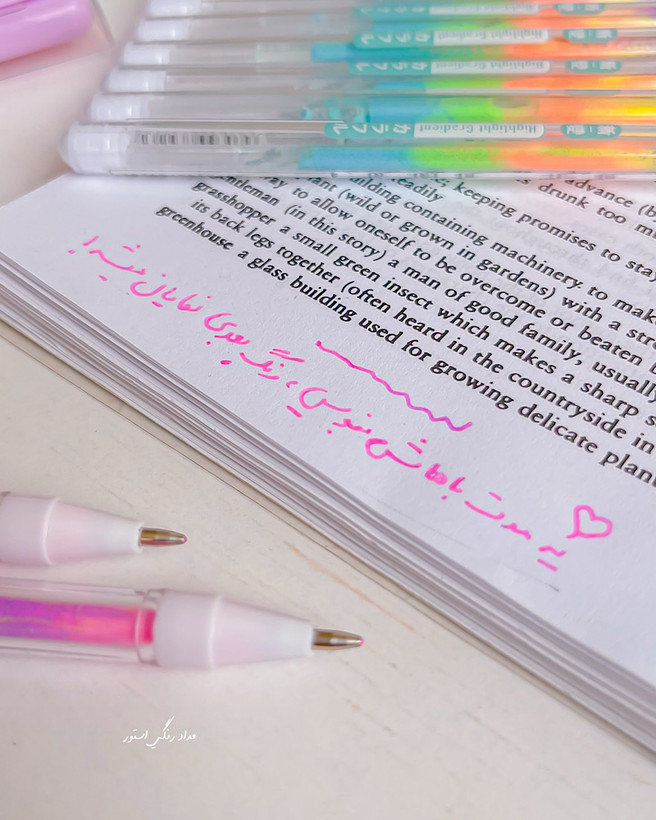 Highlight Gradient
Highlight Gradient
Highlight Gradient
advance (b
keeping promises to stay
drunk too m
readily
building containing machinery. to make
(wild or grown in gardens) with a stro
to allow oneself to be overcome or beaten b
gentleman (in this story) a man of good family, usually
grasshopper a small green insect which makes a sharp s
its back legs together (often heard in the countryside in
greenhouse a glass building used for growing delicate plant
یه مدت باهاش بنویسی، رنگ بعدی نمایان میشه!
مداد رنگی استور